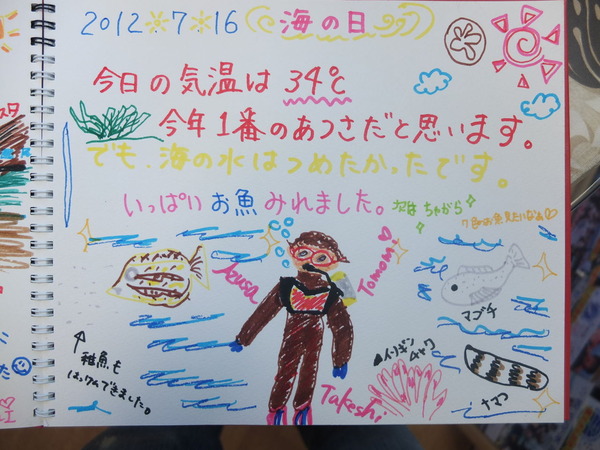 2012 7 16 海の日
今日の気温は 34℃
今年1番のあつさだと思います。
でも、海の水はつめたかったです。
いっぱいお魚みれました。
Tomomi
Takeshi
マゴチ
イソギンチャク
ナマコ
↑
稚魚も
はっけんできました。